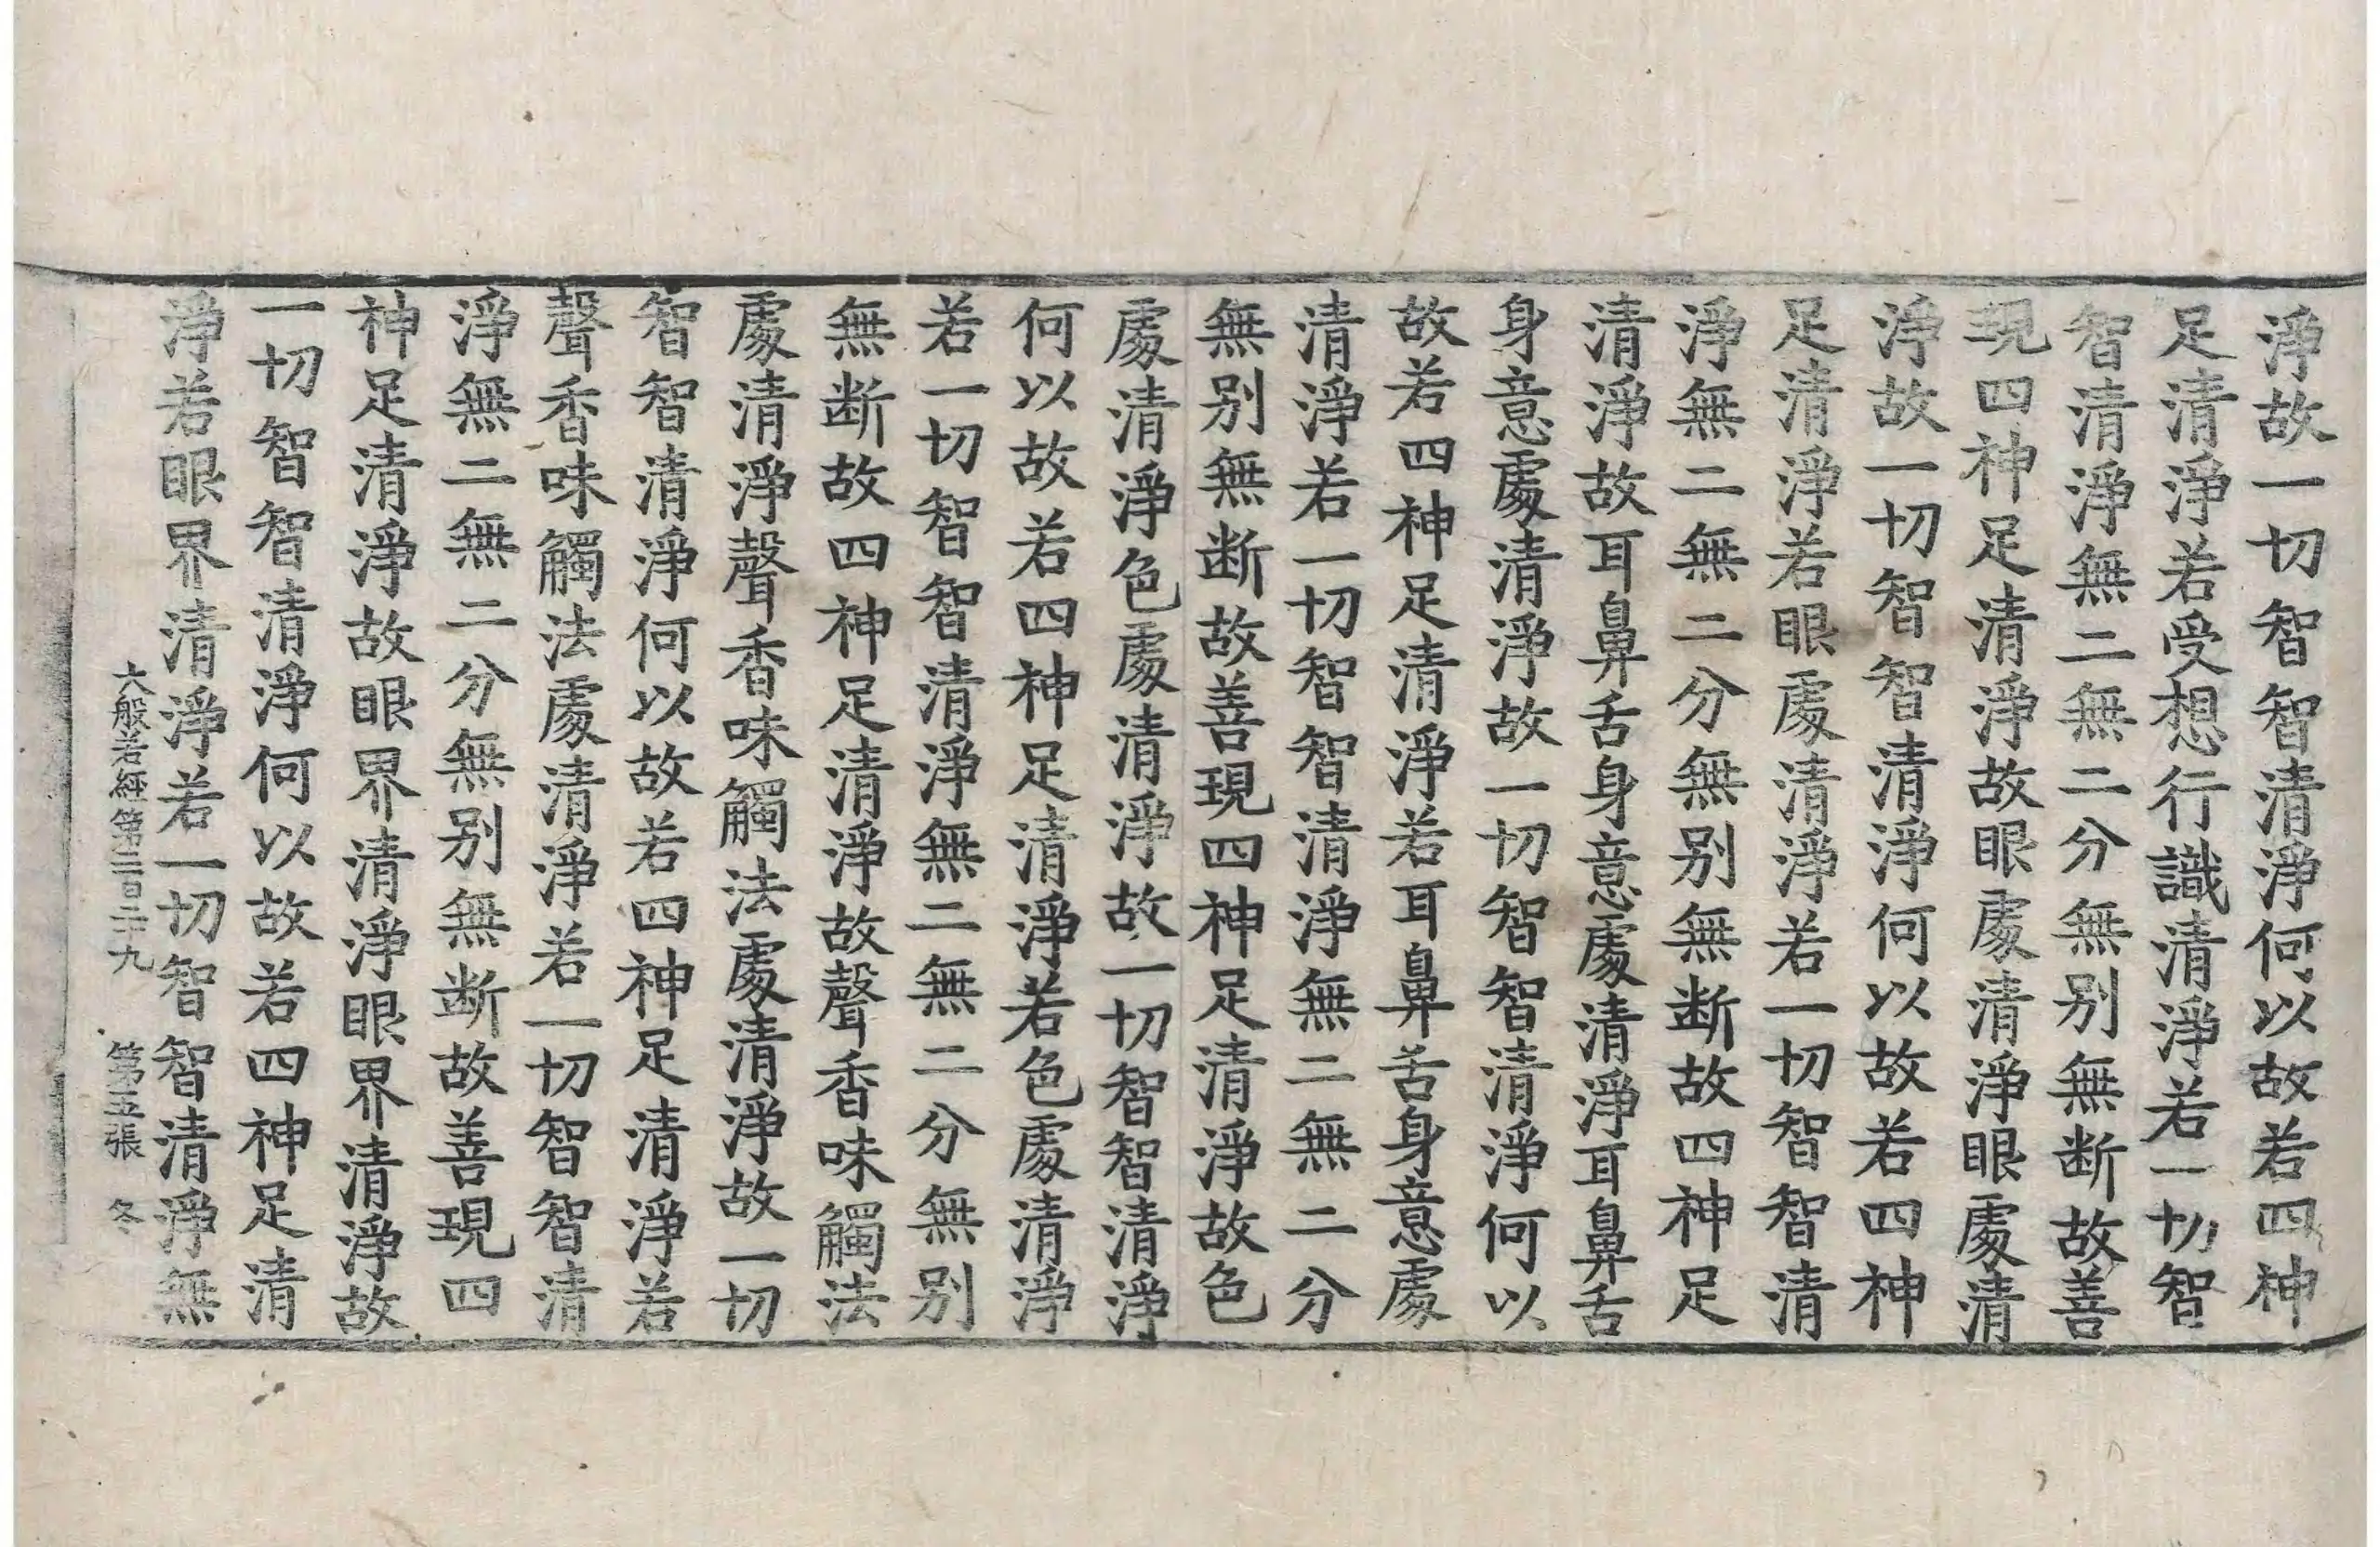 淨故一切智智清淨何以故若四神
足清淨若受想行識清淨若一切智
智清淨無二無二分無别無断故善
現四神足清淨故眼處清淨眼處清
淨故一切智智清淨何以故若四神
足清淨若眼處清淨若一切智智清
淨無二無二分無别無断故四神足
清淨故耳鼻舌身意處清淨耳鼻舌
身意處清淨故一切智智清淨何以
故若四神足清淨若耳鼻舌身意處
清淨若一切智智清淨無二無二分
無别無断故善現四神足清淨故色
處清淨色處清淨故一切智智清淨
何以故若四神足清淨若色處清淨
若一切智智清淨無二無二分無别
無断故四神足清淨故聲香味觸法
處清淨聲香味觸法處清淨故一切
智智清淨何以故若四神足清淨若
聲香味觸法處清淨若一切智智清
淨無二無二分無别無断故善現四
神足清淨故眼界清淨眼界清淨故
一切智智清淨何以故若四神足清
淨若眼界清淨若一切智智清淨無
大般若經第二百二十九 第五張 冬